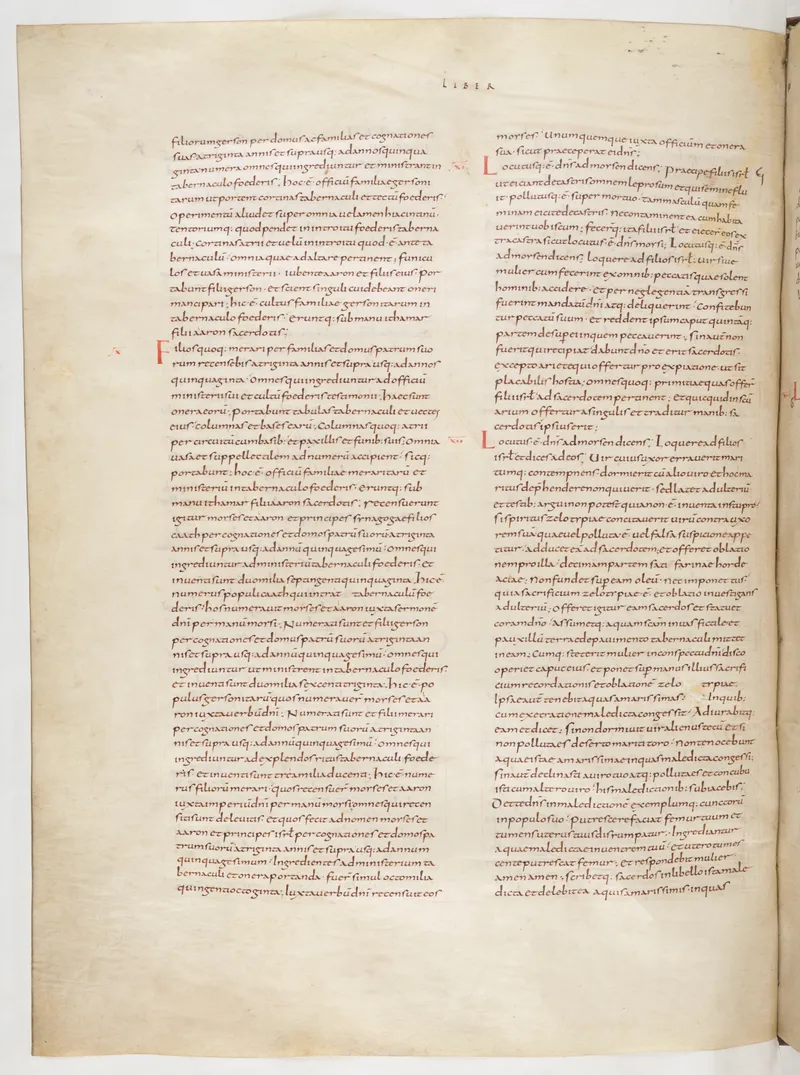 LIBER
filiorum gerson per domus ac familias et cognationes
suas a triginta annis et supra usq; ad annos quinqua
ginta numera omnes qui ingrediuntur et ministrant in
tabernaculo foederis; hoc ē officiū familiae gersoni
tarum ut portent cortinas tabernaculi et tectū foederis
operimentū aliud et super omnia uelamen hiacinctinū
tentoriumq; quod pendet in introitu foederis taberna
culi; cortinas atrii et uelū in introitu quod ē ante ta
bernaculū omnia quae ad altare pertinent; funicu
los et uasa ministerii iubente aaron et filiis eius por
tabunt filii gerson et scient singuli cui debeant oneri
mancipari; hic ē cultus familiae gersonitarum in
tabernaculo foederis eruntq; sub manu ithamar
filii aaron sacerdotis;
Filios quoq; merari per familias et domus patrum suo
rum recensebis a triginta annis et supra usq; ad annos
quinquaginta omnes qui ingrediuntur ad officiū
ministerii sui et cultū foederis testamonii; haec sunt
onera eorū; portabunt tabulas tabernaculi et uectes
eius columnas et bases earū; columnas quoq; atrii
per circuitū cum basib; et paxillis et funib; suis; omnia
uasa et suppellectilem ad numerū accipient sicq;
portabunt; hoc ē officiū familiae meraritarū et
ministeriū in tabernaculo foederis eruntq; sub
manu ithamar filii aaron sacerdotis; recensuerunt
igitur morses et aaron et principes synagogae filios
caath per cognationes et domos patrū suorū a triginta
annis et supra usq; ad annū quinquagesimū omnes qui
ingrediuntur ad ministeriū tabernaculi foederis et
inuenti sunt duo milia septingenti quinquaginta; hic ē
numerus populi caath qui intrat tabernaculū foe
deris hos numerauit morses et aaron iuxta sermonē
dn̄i per manū morsi; Numerati sunt et filii gerson
per cognationes et domos patrū suorū a triginta an
nis et supra usq; ad annū quinquagesimū omnes qui
ingrediuntur ut ministrent in tabernaculo foederis
et inuenti sunt duo milia sexcenti triginta; hic ē po
pulus gersonitarū quos numerauer̄ morses et aa
ron iuxta uerbū dn̄i; Numerati sunt et filii merari
per cognationes et domos patrum suorū a triginta an
nis et supra usq; ad annū quinquagesimū omnes qui
ingrediuntur ad explendos ritus tabernaculi foede
ris et inuenti sunt tria milia ducenti; hic ē nume
rus filiorū merari quos recensuer̄ morses et aaron
iuxta imperiū dn̄i per manū morsi omnes qui recen
siti sunt de leuitis et quos fecit ad nomen morses et
aaron et principes isrł per cognationes et domos pa
trum suorū a triginta annis et supra usq; ad annum
quinquagesimum Ingredientes ad ministerium ta
bernaculi et onera portanda fuer̄ simul octo milia
quingenti octoginta; Iuxta uerbū dn̄i recensuit eos
morses Unumquemque iuxta officium et onera
sua sicut praeceperat ei dn̄s;
Locutusq; ē dn̄s ad morsen dicens; Praecipe filiis isrł
ut eiciant de castris omnem leprosum et qui semine flu
it pollutusq; ē super mortuo tam masculū quam fe
minam eicite de castris ne contaminent ea cum habita
uerint uobiscum; fecerq; ita filii isrł et eiecer̄ eos ex
tra castra sicut locutus ē dn̄s morsi; Locutusq; ē dn̄s
ad morsen dicens; Loquere ad filios isrł; uir siue
mulier cum fecerint ex omnib; peccatis quae solent
hominib; accidere et per neglegentiā transgressi
fuerint mandatū dn̄i atq; deliquerint confitebun
tur peccatū suum et reddent ipsum caput quintāq;
partem desuper in quem peccauerint; sin autē non
fuerit qui recipiat dabunt dn̄o et erit sacerdotis
excepto ariete qui offertur pro expiatione ut sit
placabilis hostia; omnes quoq; primitiae quas offer̄
filii isrł ad sacerdotem pertinent; et quicquid in sctū
arium offertur a singulis et traditur manib; sa
cerdotis ipsius erit;
Locutus ē dn̄s ad morsen dicens; Loquere ad filios
isrł et dices ad eos; Uir cuius uxor errauerit mari
tumq; contempnens dormierit cū alio uiro et hoc ma
ritus dephendere non quiuerit sed latet adulteriū
et testib; argui non potest quia non ē inuenta in stupro
si sp̄s ritus zelotypiae concitauerit uirū contra uxo
rem suā quae uel polluta ē uel falsa suspicione appe
titur adducet eā ad sacerdotem; et offeret oblatio
nem pro illa decimam partem sati farinae horde
aciae; Non fundet sup eam oleū nec imponet tus
quia sacrificium zelotypiae ē et oblatio inuestigans
adulteriū; Offeret igitur eam sacerdos et statuet
coram dn̄o Assumetq; aquam scām in uas fictile et
pauxillū terrae de pauimento tabernaculi mittet
in eam; Cumq; steterit mulier in conspectu dn̄i disco
operiet caput eius et ponet sup manus illius sacrifi
cium recordationis et oblationē zelo typiae;
Ipse autē tenebit aquas amarissimas Inquib;
cum execratione maledicta congessit Adiurabitq;
eam et dicet; si non dormiuit uir alienus tecū et si
non polluta es deserto mariti toro non te nocebunt
aquae istae amarissimae in quas maledicta congessi;
sin autē declinasti a uiro tuo atq; polluta es et concubu
isti cum altero uiro his maledictionib; subiacebis;
Det te dn̄s in maledictionē exemplumq; cunctorū
in populo suo Putrescere faciat femur tuum et
tumens uterus tuus disrumpatur; Ingrediantur
aquae maledictae in uentrem tuū et utero tumes
cente putrescat femur; et respondebit mulier
amen amen; scribetq; sacerdos in libello ista male
dicta et delebit ea aquis amarissimis in quas